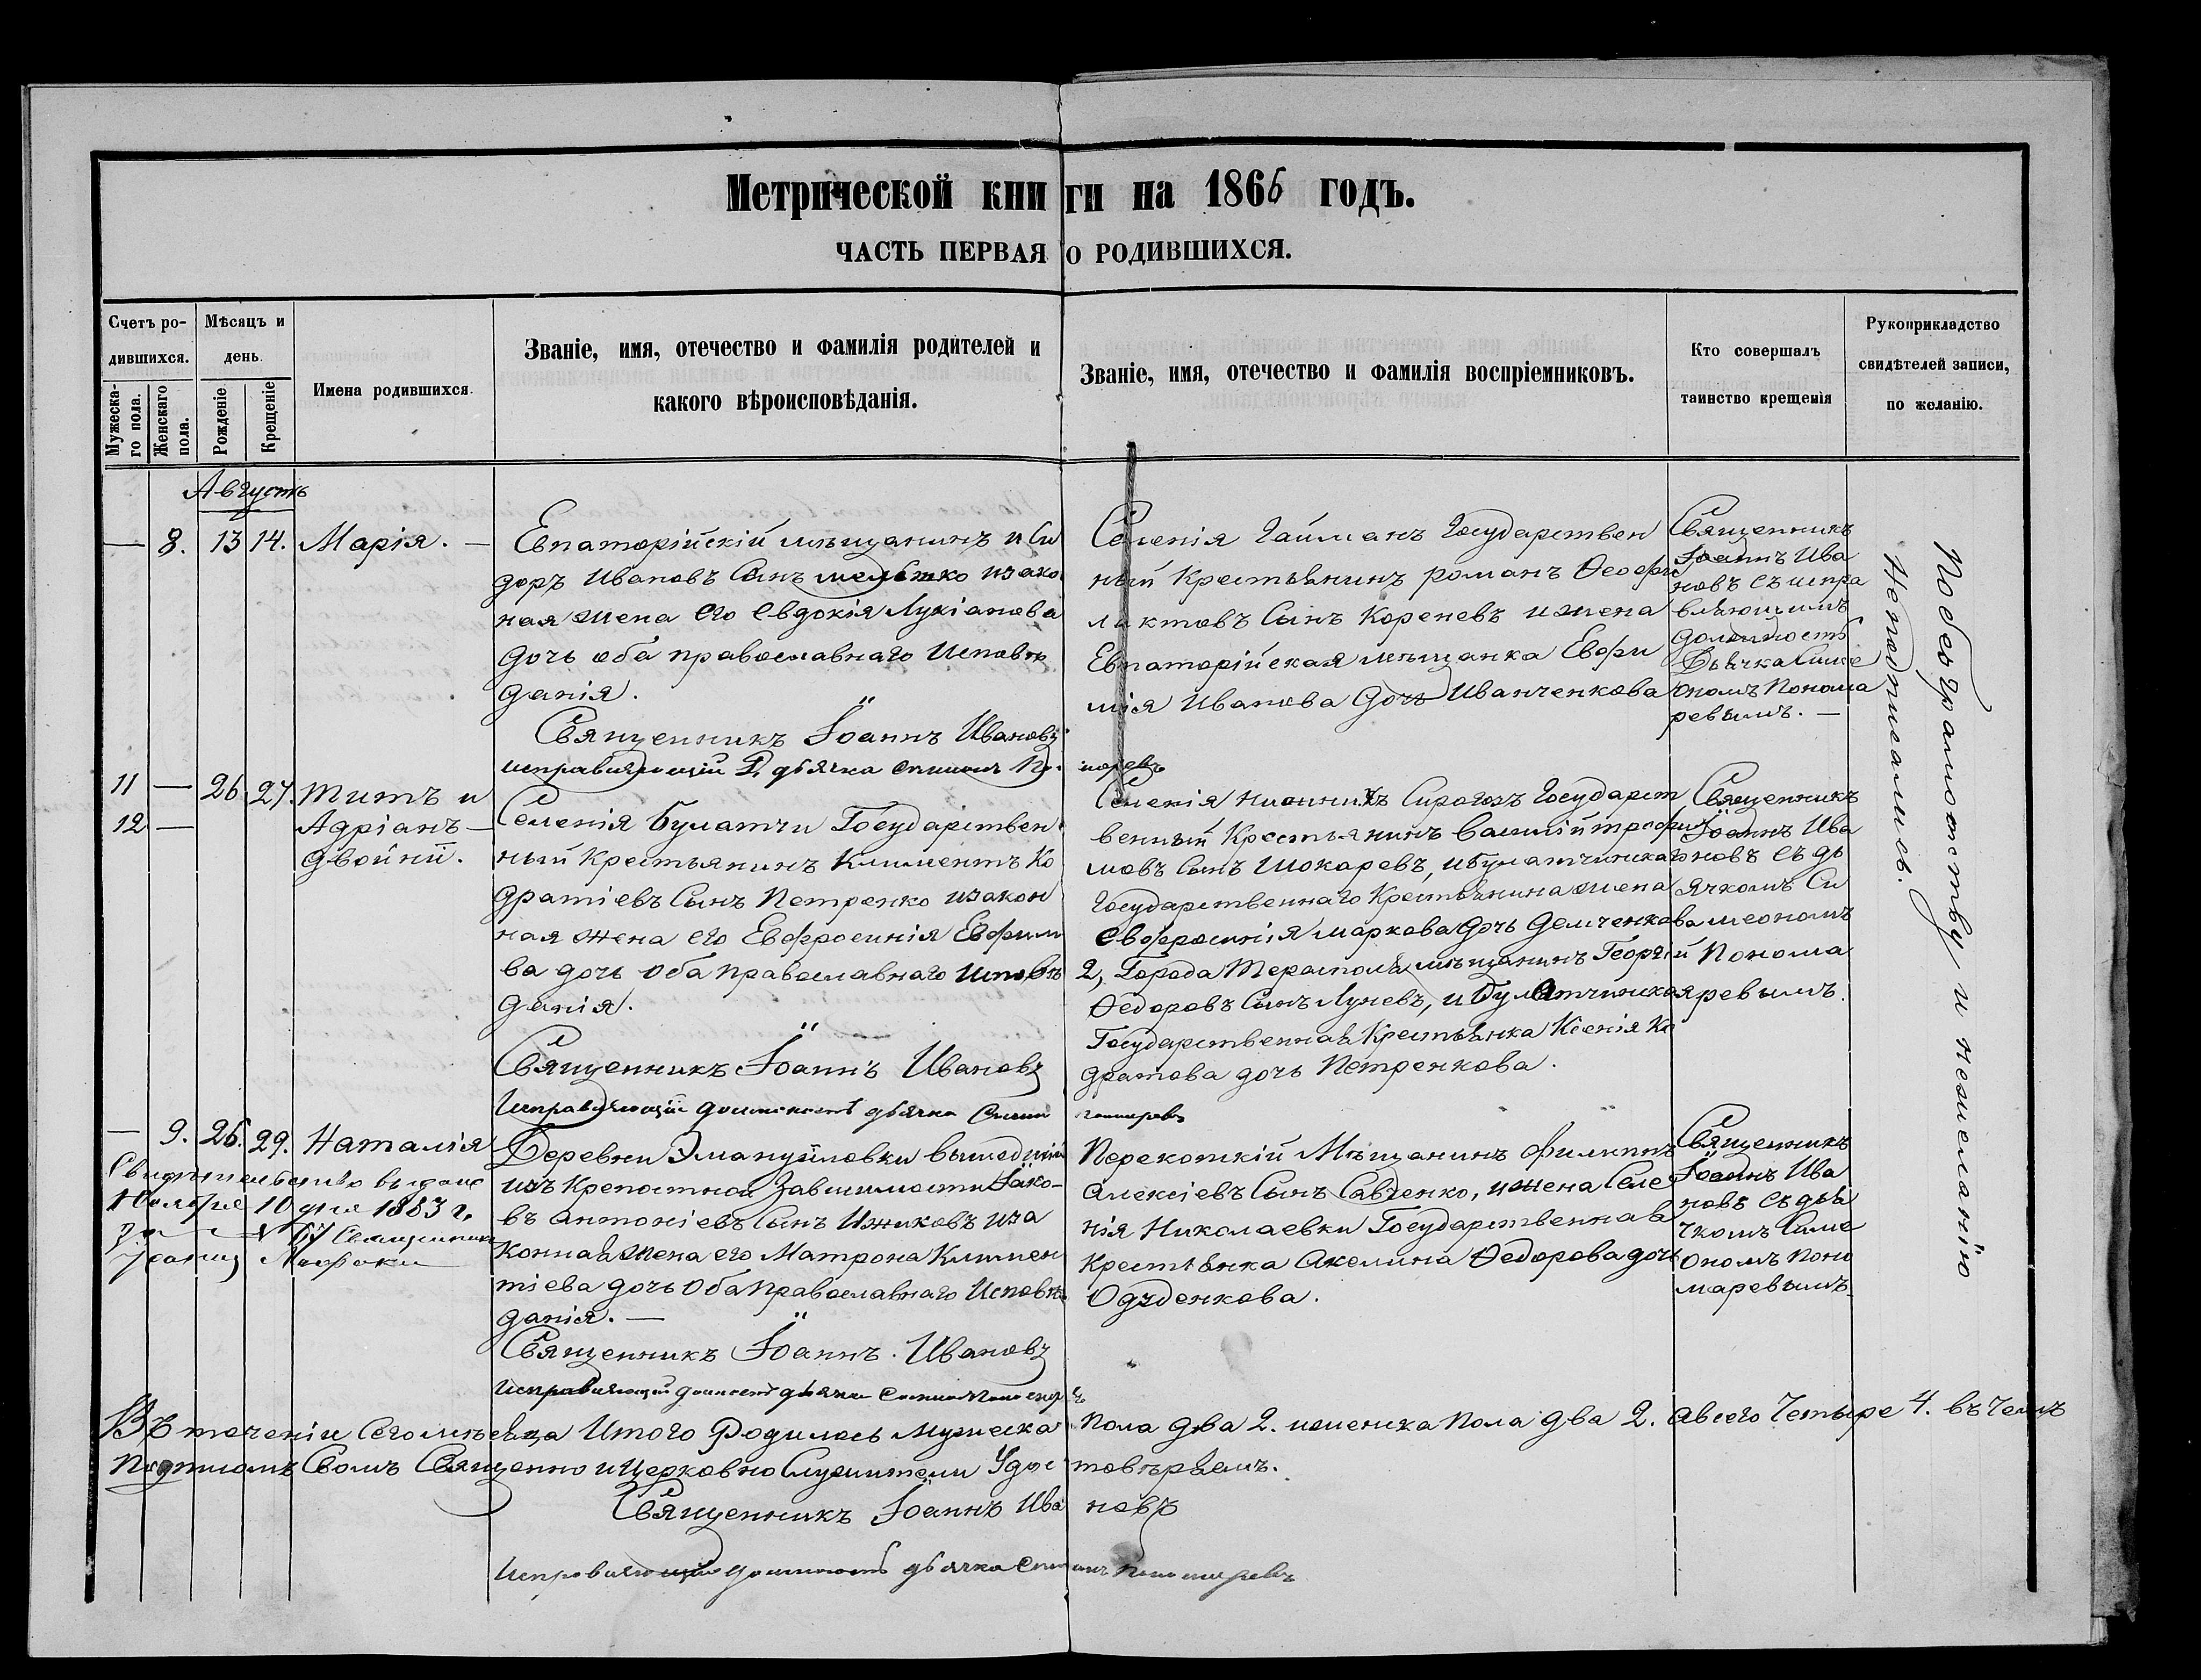 Метрической книги на 1866 годъ.
ЧАСТЬ ПЕРВАЯ О РОДИВШИХСЯ.
Счетъ ро-
дившихся.
Мужеска-
го пола.
Женскаго
пола.
Мѣсяцъ и
день.
Рожденіе
Крещеніе
Имена родившихся.
Званіе, имя, отечество и фамилія родителей и
какого вѣроисповѣданія.
Званіе, имя, отечество и фамилія воспріемниковъ.
Кто совершалъ
таинство крещенія
Рукоприкладство
свидѣтелей записи,
по желанію.
Августъ
— 8. 13 14. Марія. —
Евпаторійскій мѣщанинъ иСи
доръ Ивановъ Сынъ изако
ная жена его Евдокія Лукіанова
дочь оба православнаго Исповѣ
данія.
Священникъ Іоаннъ Ивановъ
исправляющій Д. дьячка
Селенія Гайманъ Государствен
ный Крестьянинъ романъ Ѳеофи
лактовъ Сынъ Кореневъ ижена
Евпаторійская мѣщанка Евфи
мія Иванова дочь Иванченкова
Священникъ
Іоаннъ Ива
новъ съ испра
вляющимъ
должность
Дьячка Симе
ономъ Понома
ревымъ. —
11 — 26. 27. Титъ и
12 — Адріанъ —
двойни.
Селенія Булатчи Государствен
ный Крестьянинъ Климентъ Ко
дратіевъ Сынъ Петренко изакон
ная жена его Евфросинія Евфимо
ва дочь Оба православнаго исповѣ
данія.
Священникъ Іоаннъ Ивановъ
Исправляющій должность дьячка
Селенія Сирогозъ Государст
венный Крестьянинъ Василій трофи
мовъ Сынъ Шокаревъ, ибулатчинскаго
Государственнаго Крестьянина жена
Евфросинія маркова дочь Демченкова
2, Города мѣщанинъ Георгій
Ѳедоровъ Сынъ Луневъ, и булатчинская
Государственная Крестьянка Ксенія Ко
дратова дочь Петренкова.
Священникъ
Іоаннъ Ива
новъ съ дь
ячкомъ Си
меономъ
Понома
ревымъ.
— 9. 26. 29. Наталія
Свидѣтельство выдано
Ноября 10 дня 1883 г.
за № 67 Священникъ
Деревни Эмануиловки вышедшій
изъ Крепостной Зависимости Іако-
въ антоніевъ Сынъ Ижиковъ иза
конная жена его Матрона Климен
тіева дочь Оба Православнаго Исповѣ
данія. —
Священникъ Іоаннъ Ивановъ
Исправляющій должность дьячка
Перекопскій Мѣщанинъ Филиппъ
Алексіевъ Сынъ Савченко, ижена Селе
нія Николаевки Государственная
Крестьянка Акелина Ѳедорова дочь
Одуденкова.
Священникъ
Іоаннъ Ива
новъ съ дья
чкомъ Симе
ономъ Поно
маревымъ.
По безграмотству и нежеланію
Неподписались.
Въ теченіи Сего мѣсяца Итого Родилось мужеска пола два 2. иженска пола два 2. Авсего Четыре 4. въ Чемъ
Подписомъ Своимъ Священно иЦерковно Служители Удостовѣряемъ.
Священникъ Іоаннъ Ивановъ
Исправляющій должность дьячка Симеонъ Пономаревъ